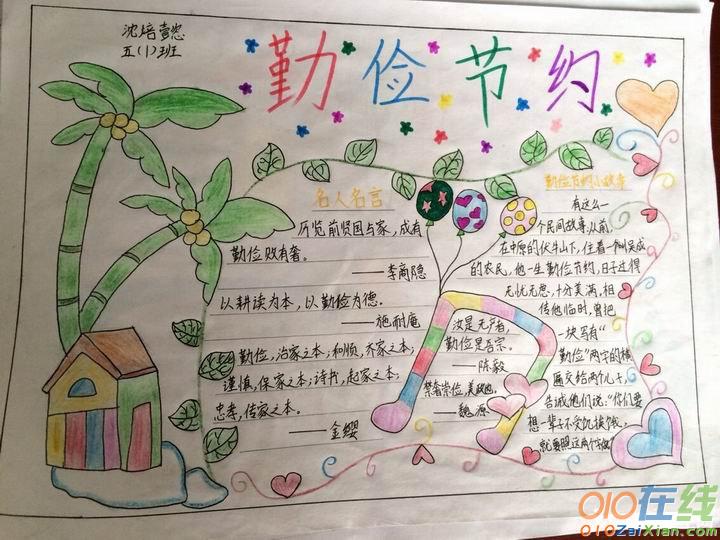 沈焙壹
五(1)班
勤俭节约
名人名言
历览前贤国与家,成有
勤俭败有奢。
——李商隐
以耕读为本,以勤俭为德。
——施耐庵
勤俭,治家之本;和顺,齐家之本;
谨慎,保家之本;诗书,起家之本;
忠孝,传家之本。
——金缨
汝是无产者,
勤俭是吾宗。
——陈毅
禁奢崇俭,美政也。
——魏源
勤俭节约小故事
有这么一
个民间故事,从前
在中原的伏牛山下,住着一个叫吴成
的农民,他一生勤俭节约,日子过得
无忧无思,十分美满,相
传他临时,曾把
一块写有“
勤俭”两字的横
匾交给两个儿子,
告诫他们说:“你们要
想一辈子不受饥挨饿,
就要照这两个字做
010在线
010ZaiXian.com